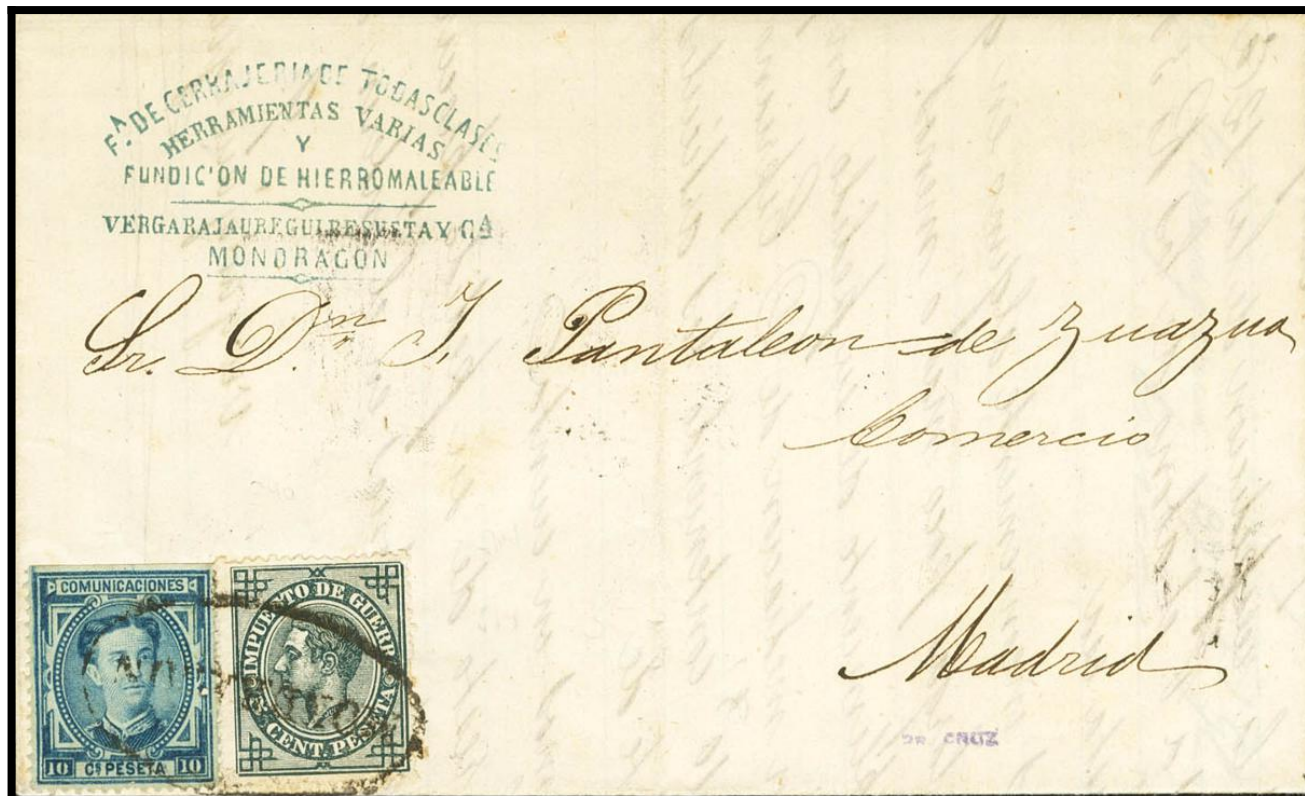 F.A DE CERRAJERIA DE TODAS CLASES
HERRAMIENTAS VARIAS
Y
FUNDIC'ON DE HIERRO MALEABLE
VERGARAJAUREGUI RESUSTA Y CA
MONDRAGON
Sr. Dn. J. Pantaleon de Zuazua
Comercio
Madrid
COMUNICACIONES
10 Cs PESETA 10
IMPUESTO DE GUERRA
5 CENT. PESETA
CRUZ